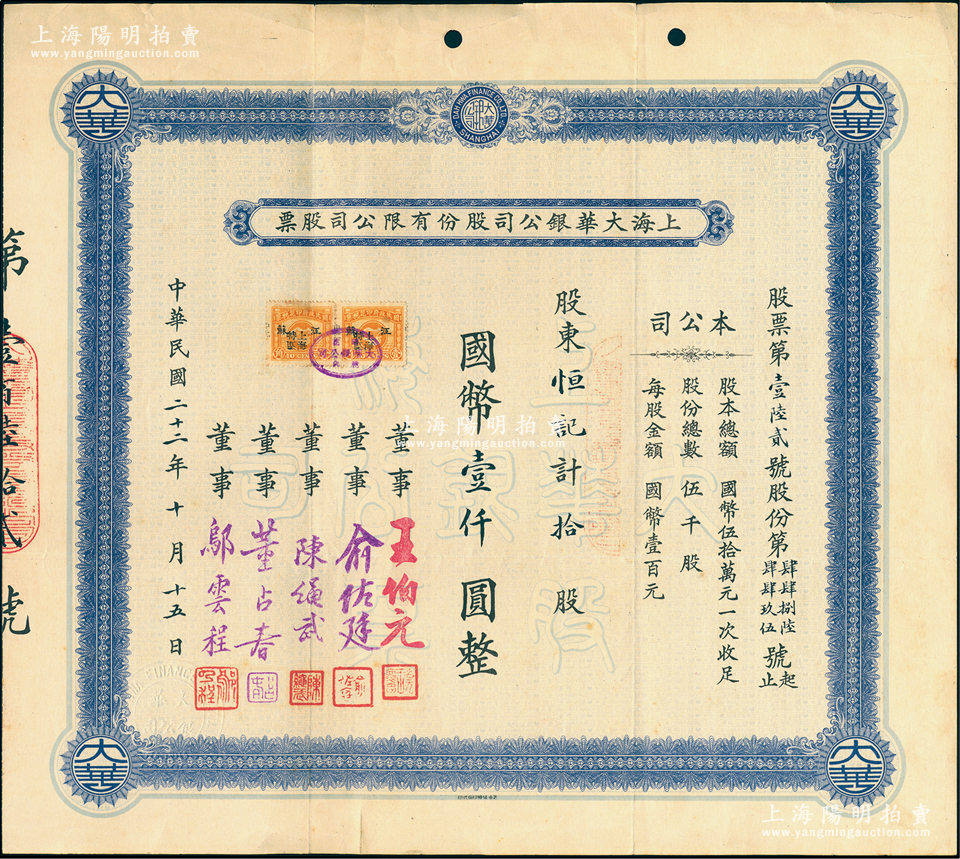 上海陽明拍賣
www.yangmingauction.com
DAH HUA FINANCE CO. LTD.
SHANGHAI
大華
大華
上海大華銀公司股份有限公司股票
股票第壹陸貳號股份第肆肆捌陸號起
肆肆玖伍號止
本公司
股本總額 國幣伍拾萬元一次收足
股份總數 伍千股
每股金額 國幣壹百元
股東恒記計拾股
國幣壹仟圓整
董事 王伯元
董事 俞佐廷
董事 陳繩武
董事 董占春
董事 鄔雲程
江蘇
上海特區
江蘇
上海特區
中華民國二十二年十月十五日
第壹百陸拾貳號
上海陽明拍賣
www.yangmingauction.com
大華
大華
上海陽明拍賣
www.yangmingauction.com